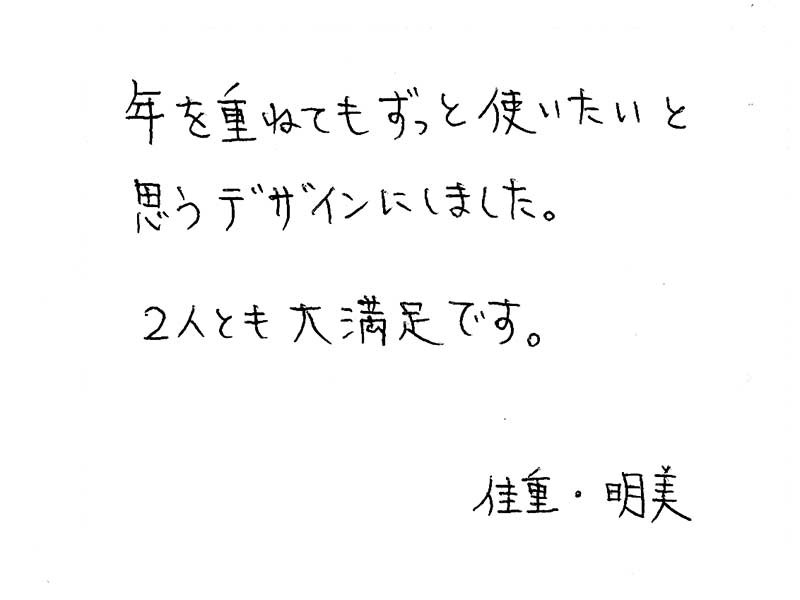 年を重ねてもずっと使いたいと
思うデザインにしました。
2人とも大満足です。
佳重・明美